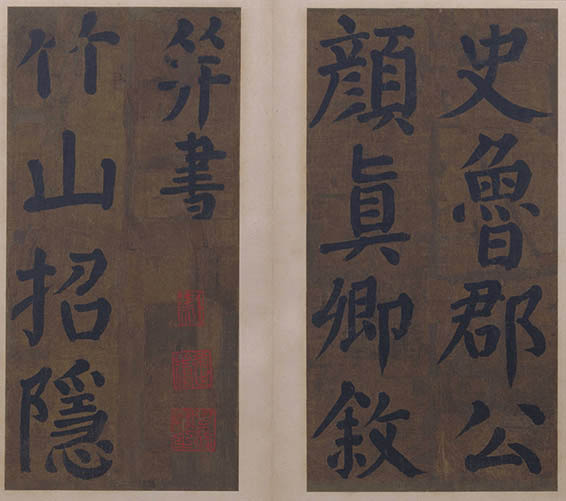 史魯郡公
顏眞卿敘
幷書
竹山招隱